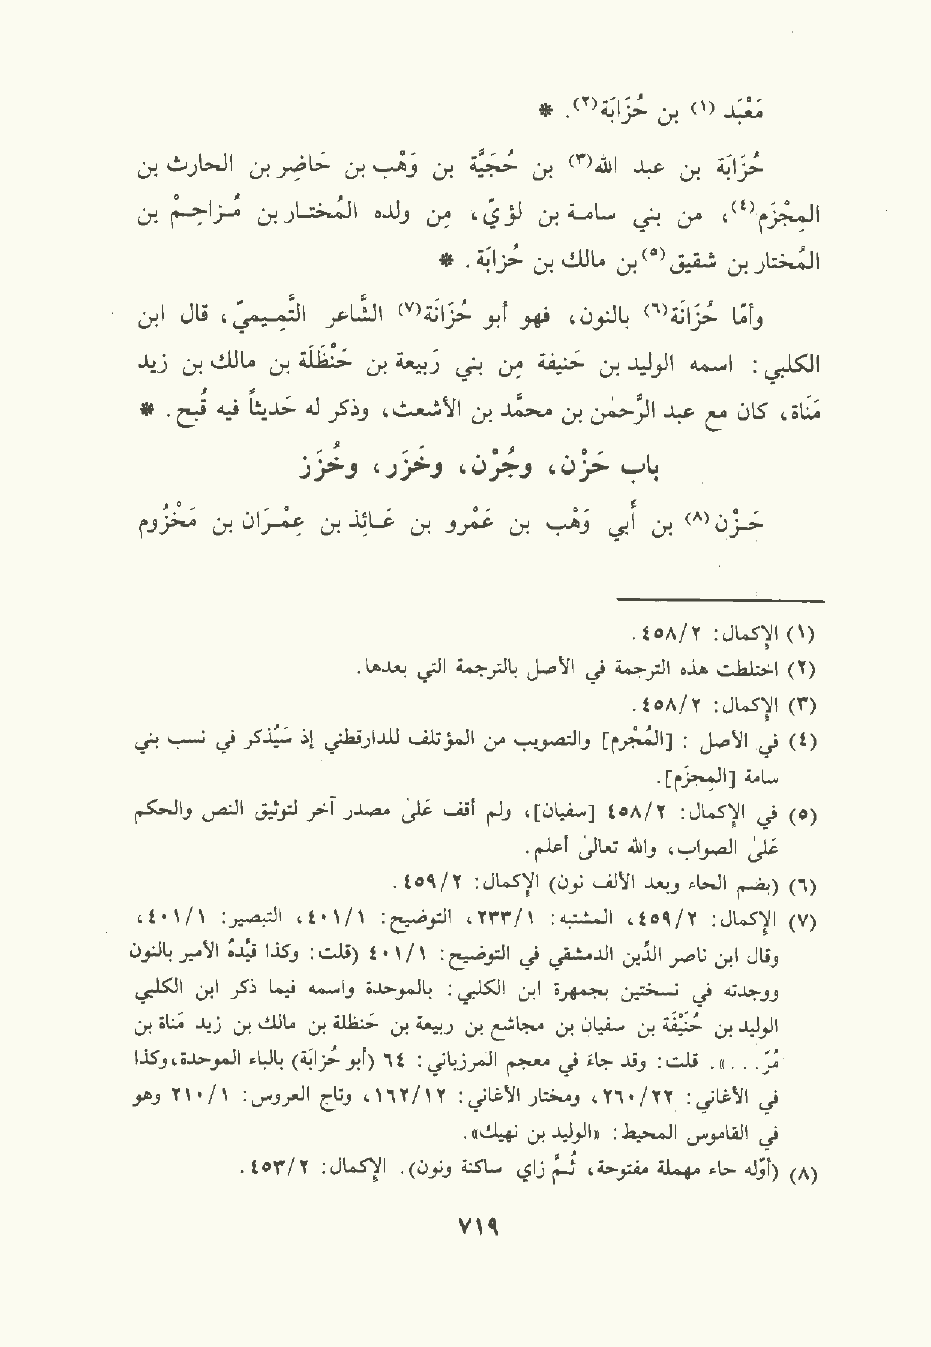 مَعْبَد (١) بن حُزَابَة(٢). *
حُزَابَة بن عبد الله(٣) بن حُجَيَّة بن وَهْب بن حَاضِر بن الحارث بن
المِجْزَم(٤)، من بني سامة بن لؤيّ، من ولده المُختار بن مُزاحِم بن
المُختار بن شقيق(٥) بن مالك بن حُزابَة. *
وأمّا حُزَانَة(٦) بالنون، فهو أبو حُزَانَة(٧) الشَّاعر التَّمِيميّ، قال ابن
الكلبي: اسمه الوليد بن حَنيفة من بني رَبيعة بن حَنْظَلَة بن مالك بن زيد
مَنَاة، كان مع عبد الرَّحمٰن بن محمّد بن الأشعث، وذكر له حَديثاً فيه قُبح. *
باب حَزْن، وجُرْن، وخَزَر، وخُزَز
حَزْن(٨) بن أَبي وَهْب بن عَمْرو بن عَائِذ بن عِمْرَان بن مَخْزُوم
(١) الإكمال: ٤٥٨/٢.
(٢) اختلطت هذه الترجمة في الأصل بالترجمة التي بعدها.
(٣) الإكمال: ٤٥٨/٢.
(٤) في الأصل: [المُجْرم] والتصويب من المؤتلف للدارقطني إذ سَيُذكر في نسب بني
سامة [المِجزَم].
(٥) في الإكمال: ٤٥٨/٢ [سفيان]، ولم أقف علىٰ مصدر آخر لتوثيق النص والحكم
علىٰ الصواب، والله تعالىٰ أعلم.
(٦) (بضم الحاء وبعد الألف نون) الإكمال: ٤٥٩/٢.
(٧) الإكمال: ٤٥٩/٢، المشتبه: ٢٣٣/١، التوضيح: ٤٠١/١، التبصير: ٤٠١/١،
وقال ابن ناصر الدّين الدمشقي في التوضيح: ٤٠١/١ (قلت: وكذا قيّدَهُ الأمير بالنون
ووجدته في نسختين بجمهرة ابن الكلبي: بالموحدة واسمه فيما ذكر ابن الكلبي
الوليد بن حُنَيْفَة بن سفيان بن مجاشع بن ربيعة بن حَنظلة بن مالك بن زيد مَناة بن
مُرّ. . .». قلت: وقد جاء في معجم المرزباني: ٦٤ (أبو حُزابَة) بالباء الموحدة، وكذا
في الأغاني: ٢٦٠/٢٢، ومختار الأغاني: ١٦٢/١٢، وتاج العروس: ٢١٠/١ وهو
في القاموس المحيط: «الوليد بن نهيك».
(٨) (أوّله حاء مهملة مفتوحة، ثُمّ زاي ساكنة ونون). الإكمال: ٤٥٣/٢.
٧١٩